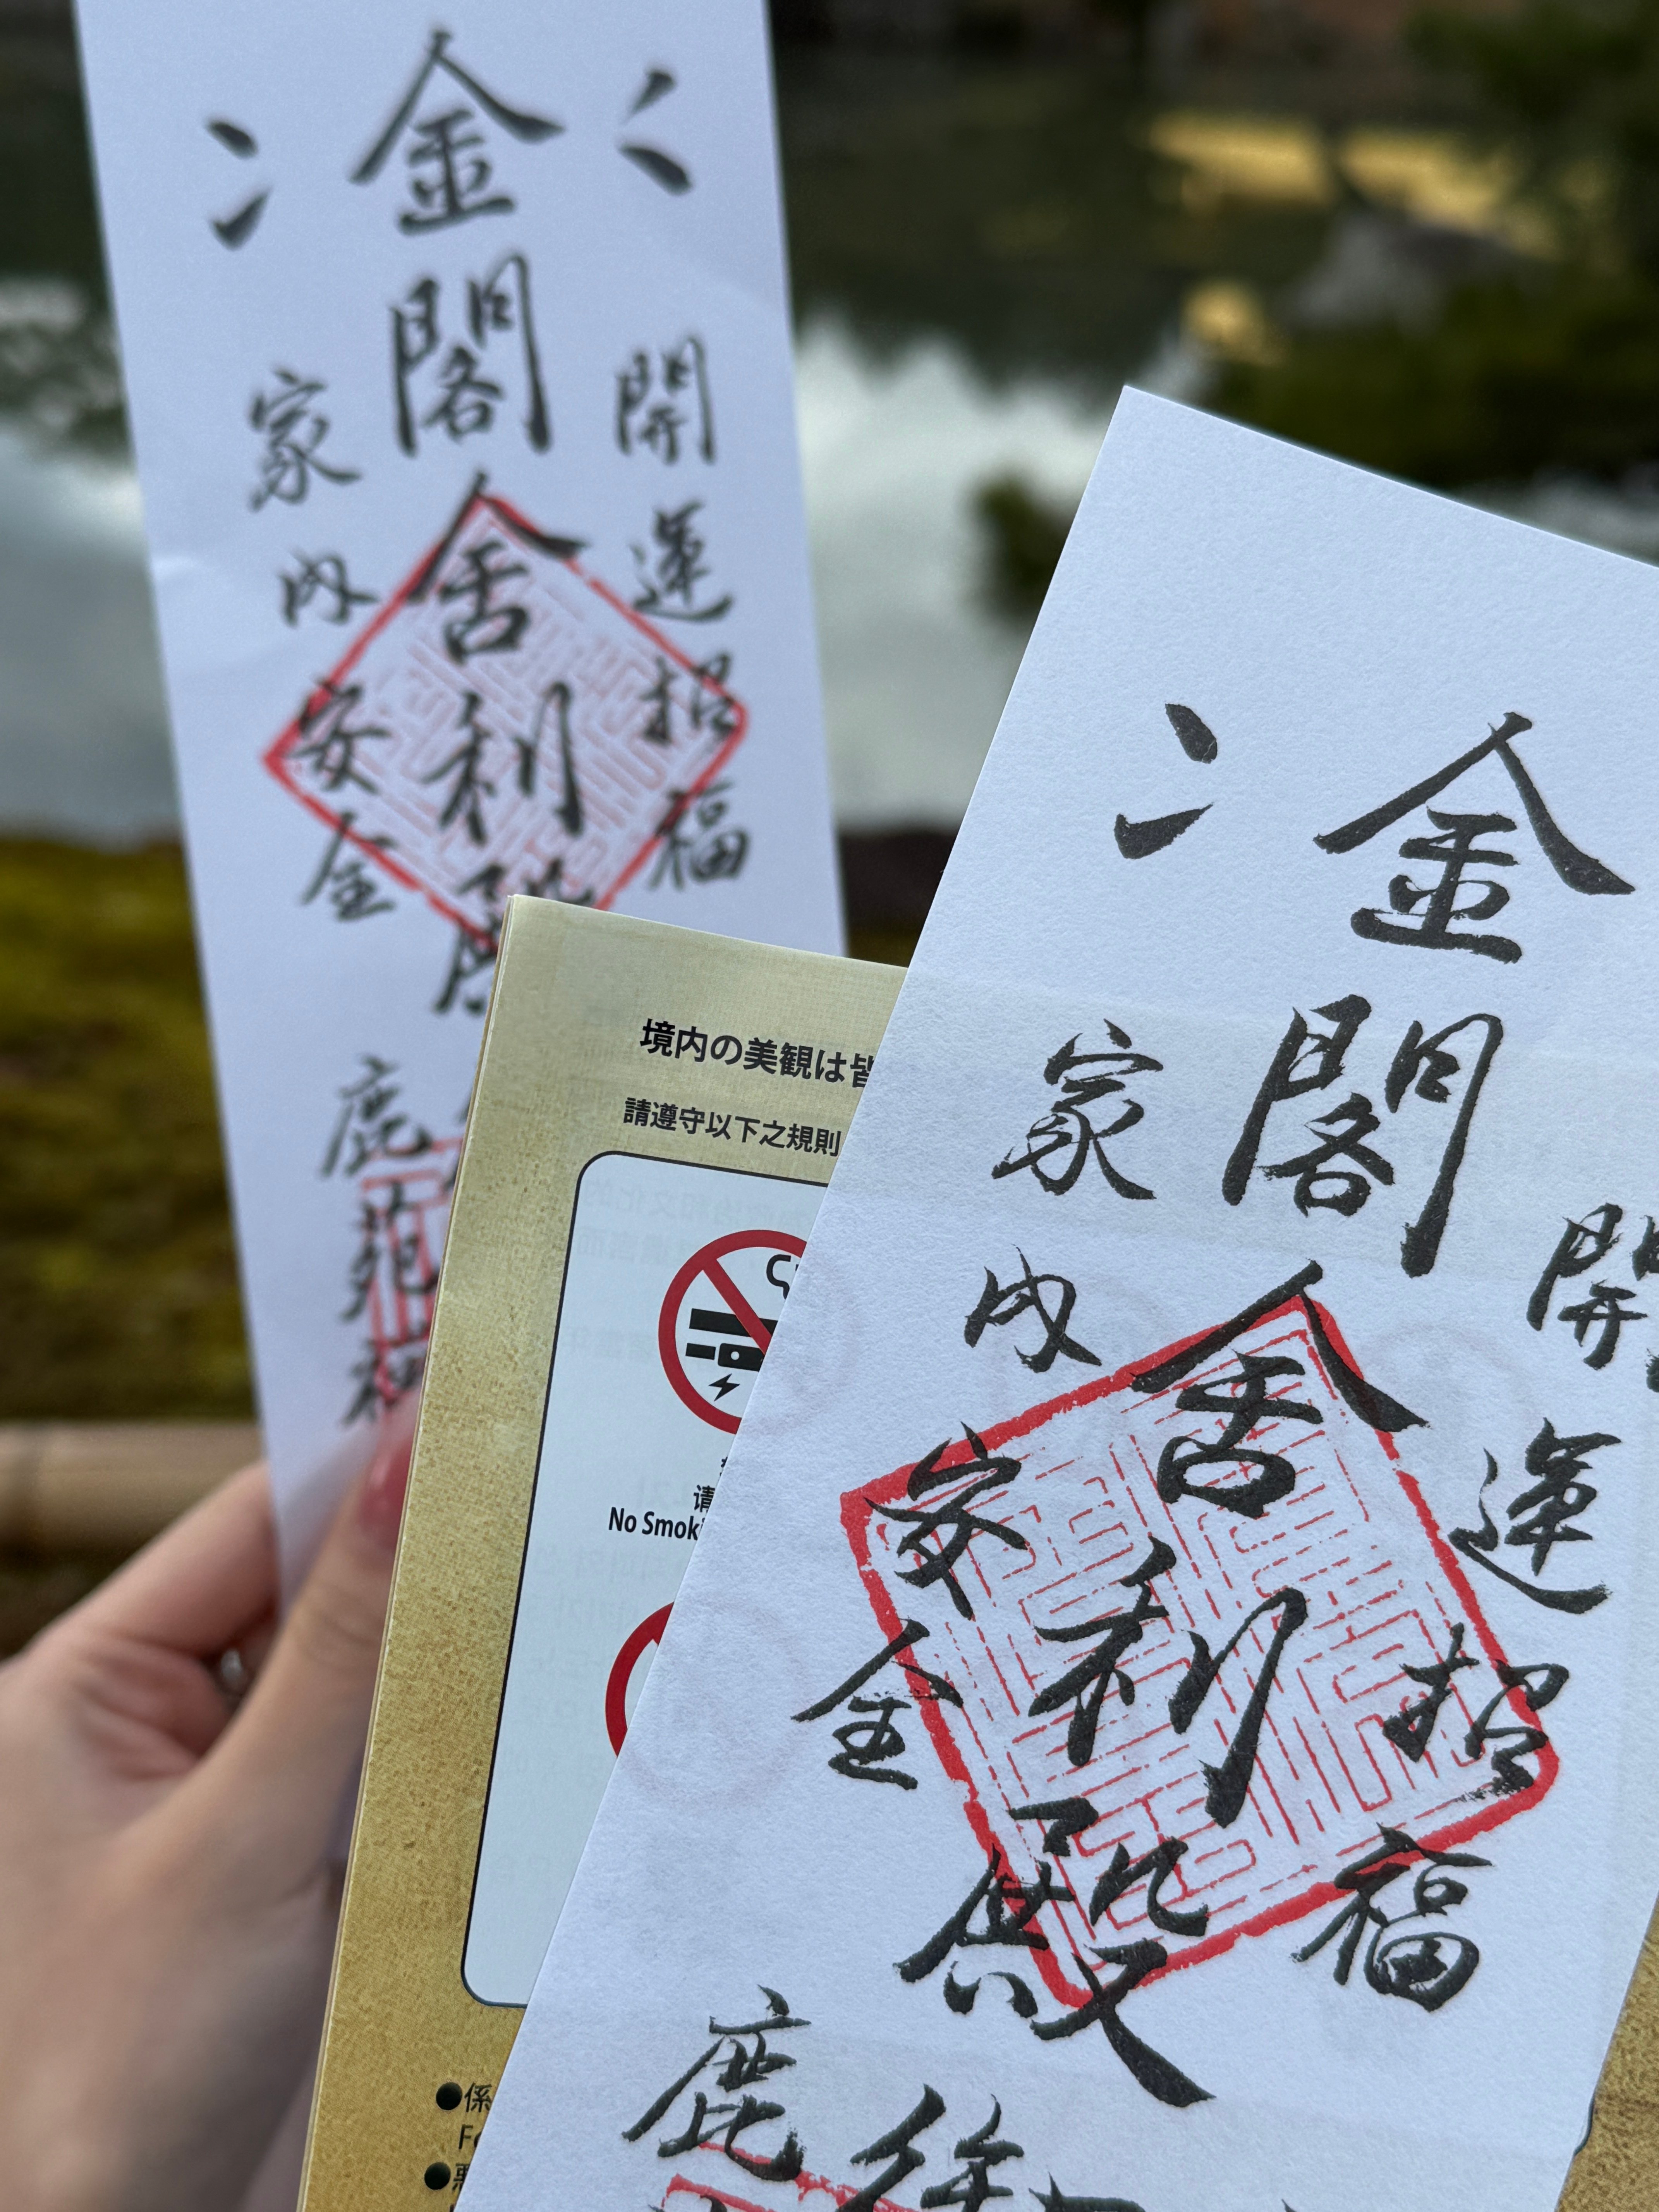 開運招福
金閣舍利殿
家内安全
鹿苑
境内の美観は皆
請遵守以下之規則
请
No Smok
●係
F
●悪
金閣舍利殿
開運招福
家内安全
鹿